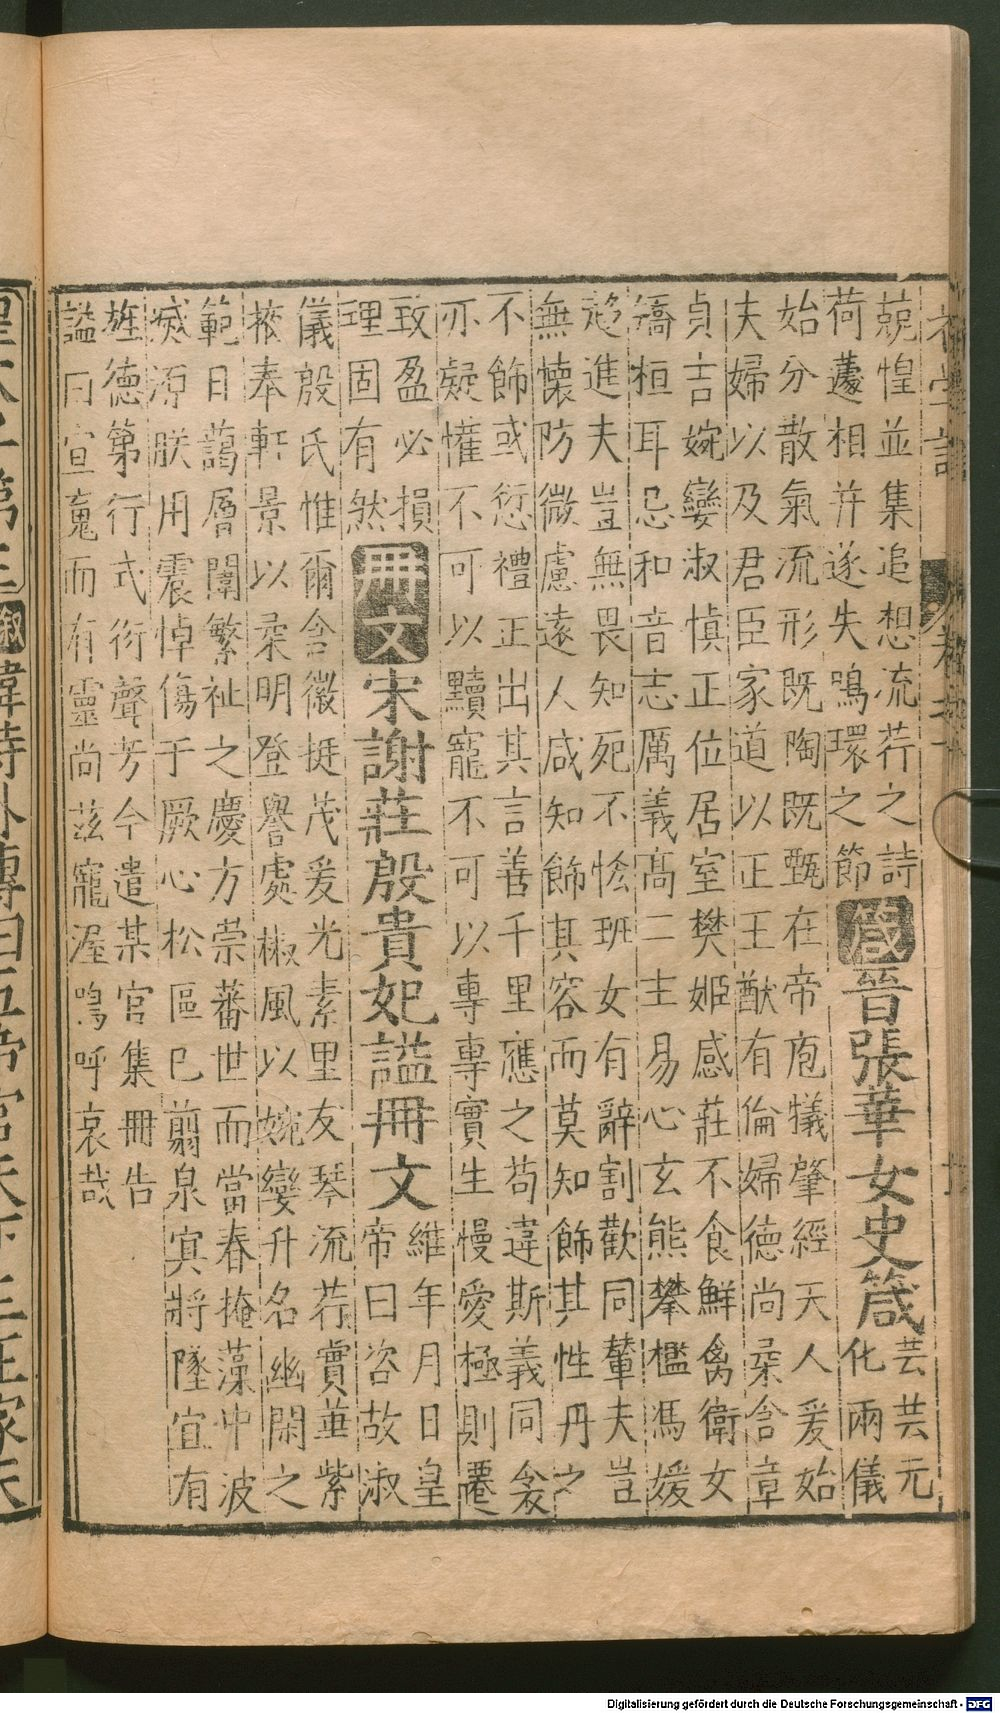 兢惶並集追想流荇之詩
荷蘧相并遂失鳴環之節
箴晉張華女史箴
芸芸元
化兩儀
始分散氣流形既陶既甄在帝庖犧肇經天人爰始
夫婦以及君臣家道以正王猷有倫婦德尚柔含章
貞吉婉孌淑慎正位居室樊姬感莊不食鮮禽衛女
矯桓耳忌和音志厲義高二主易心玄熊攀檻馮媛
趍進夫豈無畏知死不恡班女有辭割歡同輦夫豈
無懷防微慮遠人咸知飾其容而莫知飾其性丹之
不飾或愆禮正出其言善千里應之苟違斯義同衾
亦疑懽不可以黷寵不可以專專實生慢愛極則遷
致盈必損
理固有然
冊文宋謝莊殷貴妃謚冊文
維年月日皇
帝曰咨故淑
儀殷氏惟爾含徽挺茂爰光素里友琴流荇實華紫
掖奉軒景以柔明登譽處椒風以婉孌升名幽閑之
範日藹層闈繁祉之慶方崇蕃世而當春掩藻中波
滅源朕用震悼傷于厥心松區已翦泉寘將墜宜有
旌德第行式衍聲芳今遣某官集冊告
謚曰宣䰟而有靈尚茲寵渥嗚呼哀哉
韓詩外傳曰五帝官天下三王家天
Digitalisierung gefördert durch die Deutsche Forschungsgemeinschaft - DFG